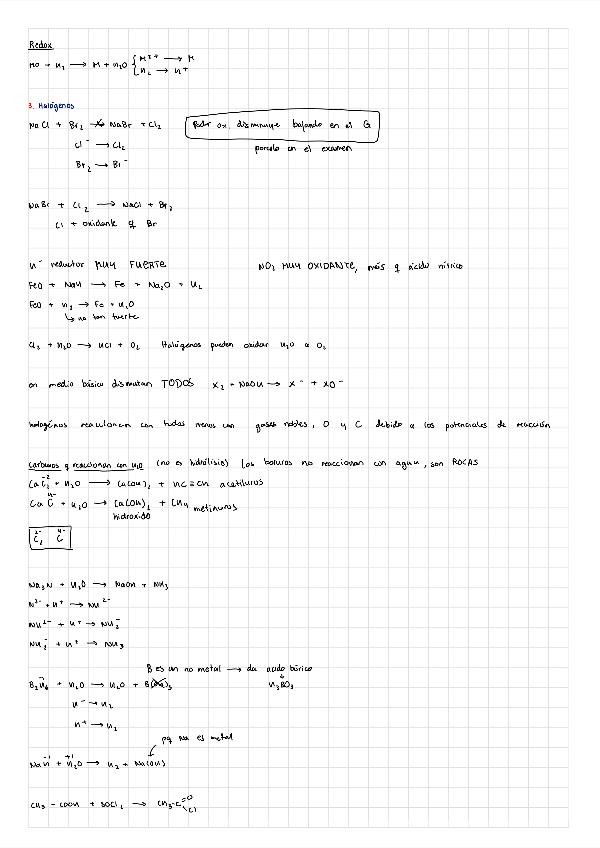 Redox
MO + H₂ → M + H₂O { M²⁺ → M
H₂ → H⁺
3. Halógenos
NaCl + Br₂ ↛ NaBr + Cl₂ Poder ox. disminuye bajando en el G
Cl⁻ → Cl₂ ponedlo en el examen
Br₂ → Br⁻
NaBr + Cl₂ → NaCl + Br₂
Cl + oxidante q Br
H⁻ reductor MUY FUERTE NO₂ MUY OXIDANTE, más q ácido nítrico
FeO + NaH → Fe + Na₂O + H₂
FeO + H₂ → Fe + H₂O
↳ no tan fuerte
Cl₂ + H₂O → HCl + O₂ Halógenos pueden oxidar H₂O a O₂
en medio básico dismutan TODOS X₂ + NaOH → X⁻ + XO⁻
halogénos reaccionan con todas menos con gases nobles, O y C debido a los potenciales de reacción
Carburos q reaccionan con H₂O (no es hidrólisis) Los boruros no reaccionan con agua, son ROCAS
CaC₂⁻² + H₂O → Ca(OH)₂ + HC≡CH acetiluros
CaC⁴⁻ + H₂O → Ca(OH)₂ + CH₄ metinuros
hidroxido
C₂²⁻ C⁴⁻
Na₃N + H₂O → NaOH + NH₃
N³⁻ + H⁺ → NH²⁻
NH²⁻ + H⁺ → NH₂⁻
NH₂⁻ + H⁺ → NH₃
B es un no metal → da acido bórico
B₂H₆ + H₂O → H₂O + B(OH)₃ H₃BO₃
H⁻ → H₂
H⁺ → H₂
pq Na es metal
NaH⁻¹ + H₂⁺¹O → H₂ + Na(OH)
CH₃ - COOH + SOCl₂ → CH₃-C=O
Cl